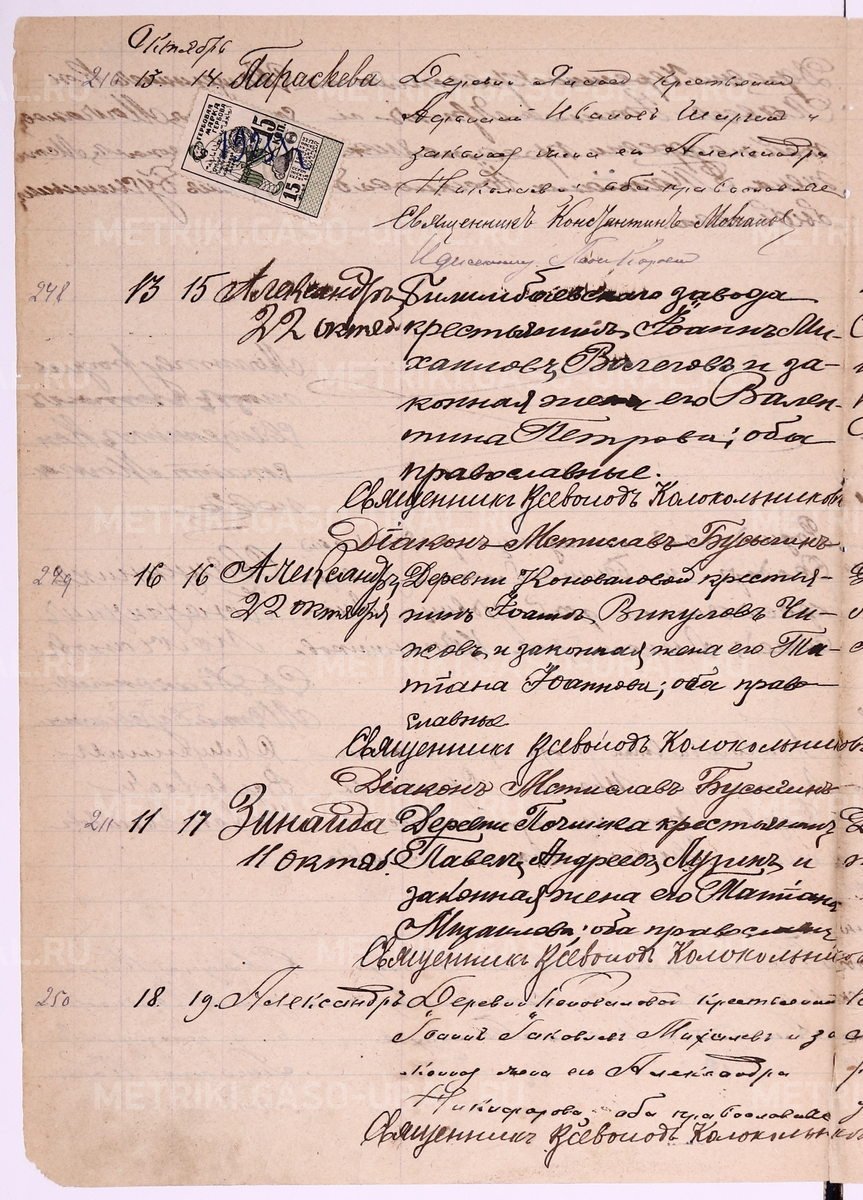 Октябрь
210 13 14 Параскева Деревни крестьянин
Афанасий Ивановъ и
законная жена его Александра
Николаевна оба православные
Священникъ Константинъ
ГЕРБОВАЯ МАРКА 15 КОП 15
248 13 15 Александръ Билимбаевскаго завода
22 октяб. крестьянинъ Іоаннъ Ми-
хаиловъ Вилеговъ и за-
конная жена его Вален-
тина Петрова; оба
православные.
Священникъ Всеволодъ Колокольников
Діаконъ Мстиславъ Бусыгинъ
249 16 16 Александръ Деревни Коноваловой крестья-
22 октября нинъ Іоаннъ Викуловъ Чи-
жовъ и законная жена его Та-
тіана Іоаннова; оба право-
славные
Священникъ Всеволодъ Колокольников
Діаконъ Мстиславъ Бусыгинъ
211 11 17 Зинаида Деревни Починка крестьянинъ
11 октяб. Павелъ Андреевъ Лузинъ и
законная жена его Татіана
Михаилова; оба православные
Священникъ Всеволодъ Колокольников
250 18. 19. Александръ Деревни Коноваловой крестьянинъ
Іоаннъ Іаковлевъ Михалевъ и за
конная жена его Александра
Никифорова оба православные
Священникъ Всеволодъ Колокольник
METRIKI.GASO-URAL.RU